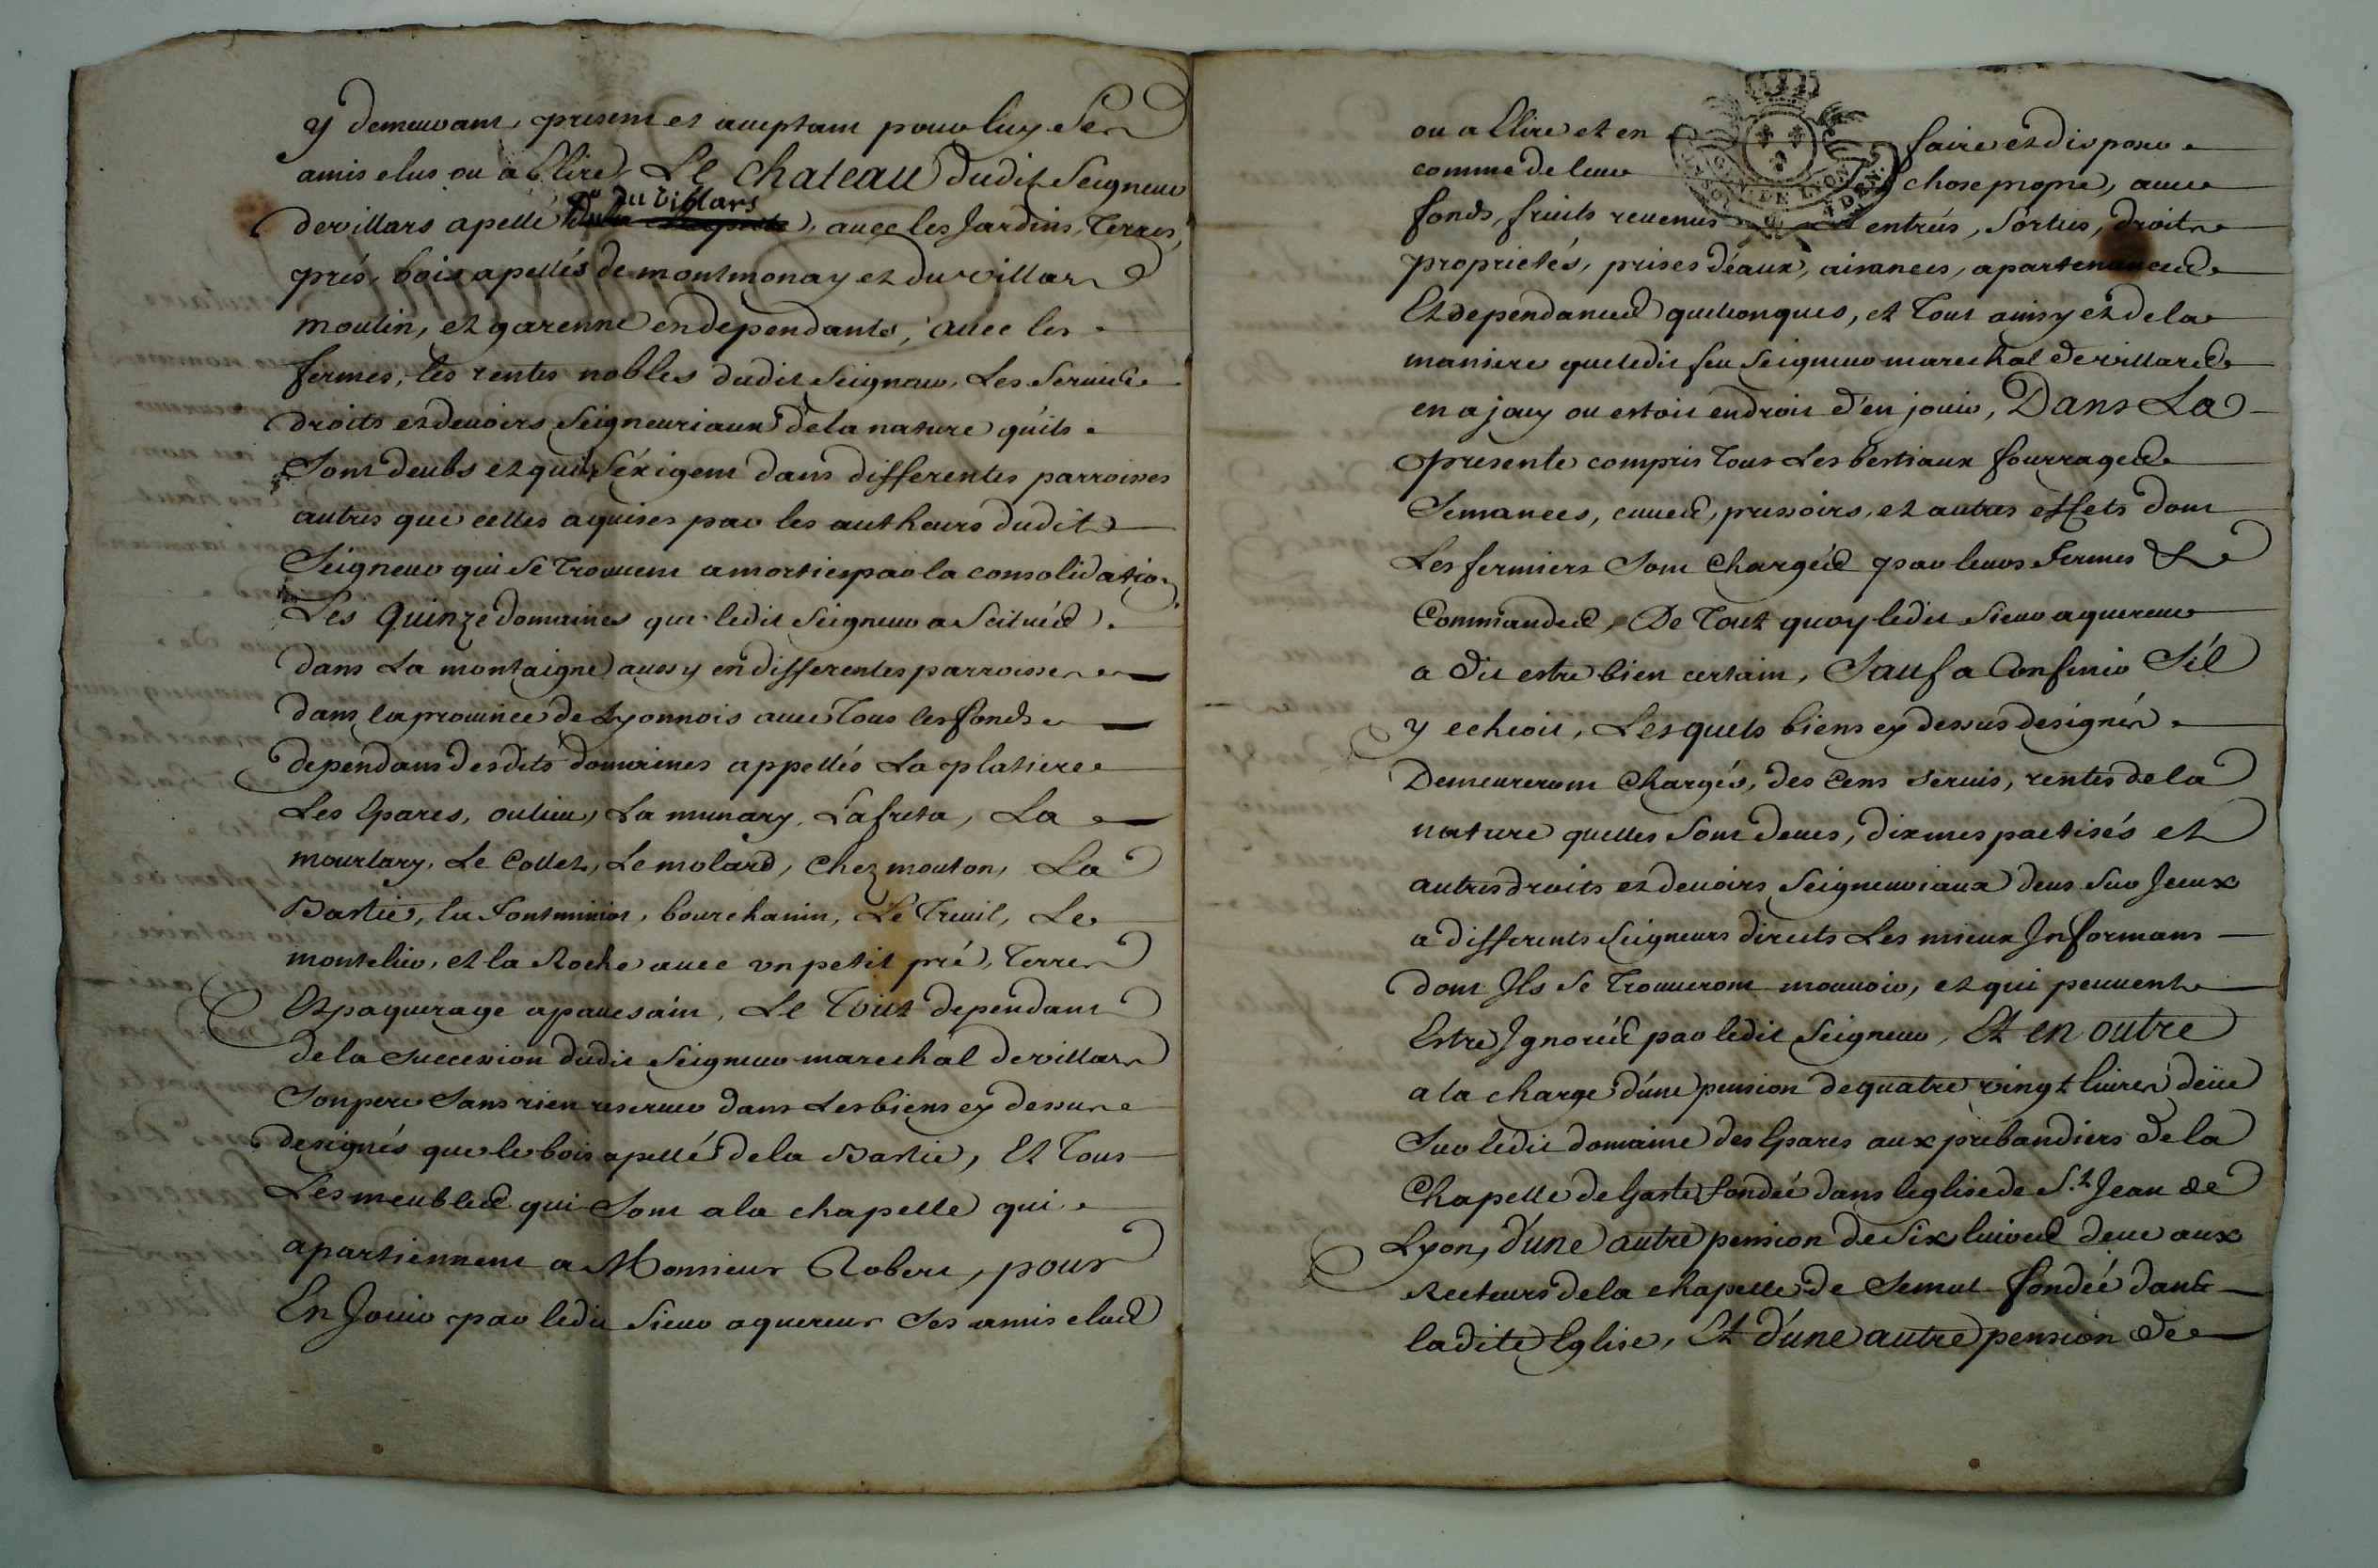 y demeurant, present et aceptant pour luy Ses
amis elus ou a Elire, Le Chateau dudit Seigneur
de villars apellé du villars, avec les Jardins, Terres,
prés, bois apellés de montmonay et du villars
moulin, et garenne en dependants, avec les
fermes, les rentes nobles dudit Seigneur, Les Services
droits et devoirs Seigneuriaux de la nature quils
Sont deubs et qui S'éxigent dans differentes parroisses
autres que celles aquises par les autheurs dudit
Seigneur qui Se Trouvent amorties par la consolidation
Les Quinze domaines que ledit Seigneur a Scitués
dans La montaigne aussy en differentes parroisses
dans la province de Lyonnois avec Tous les fonds
dependans desdits domaines appellés La platiere
Les Epares, oulieu, La munary, Lafreta, La
mourlary, Le Collet, Le molard, Chez mouton, La
Bastie, la Fontminiot, bourchanin, Le Treuil, Le
montelier, et la Roche avec un petit pré, Terres
Et paquerage apavesain, Le Tout dependant
de la Succession dudit Seigneur marechal de villars
Son pere Sans rien reserver dans Les biens cy dessus
designés que le bois apellé de la Bastie, Et Tous
Les meubles qui Sont a la chapelle qui
apartiennent a Monsieur Robert, pour
En Jouir par ledit Sieur aquereur Ses amis elus
ou a Elire et en faire et disposer
comme de leur chose propre, avec
fonds, fruits revenus entrées, Sorties, droits
proprietés, prises d'eaux, aisances, apartenances
Et dependances quelconques, et Tout ainsy et de la
maniere que ledit feu Seigneur marechal de villars
en a jouy ou estoit en droit d'en jouir, Dans La
presente compris Tous Les bestiaux fourrages
Semances, cuves, pressoirs, et autres effets dont
Les fermiers Sont Chargés par leurs Fermes &
Commandes, De Tout quoy ledit Sieur aquereur
a dit estre bien certain, Sauf a Confinir S'il
y echeoit, Lesquels biens cy dessus designés
Demeureront Chargés, des Cens Servis, rentes de la
nature quelles Sont deues, dixmes pactisés et
autres droits et devoirs Seigneuriaux deus Sur Jceux
a differents Seigneurs directs Les mieux Jnformans
dont Jls Se Trouveront mouvoir, et qui peuvent
Estre Jgnorés par ledit Seigneur, Et en outre
a la charge d'une pension de quatre vingt livres deüe
Sur ledit domaine des Epares aux prebandiers de la
Chapelle de Garte fondée dans leglise de S.t Jean de
Lyon, d'une autre pension de Six livres deue aux
Recteurs de la chapelle de Semul fondée dans
ladite Eglise, Et d'une autre pension de